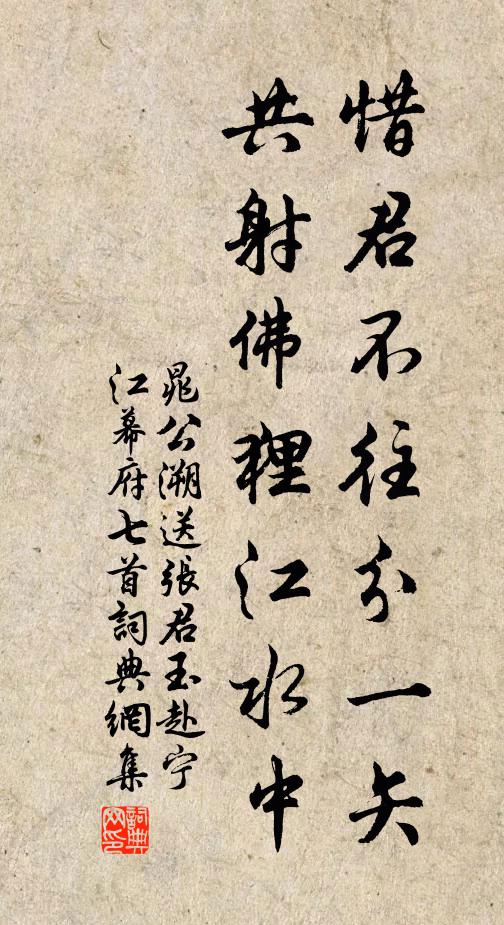 惜君不往分一矢
共射佛狸江水中
晁公溯送張君玉赴宁
江幕府七首詞典網集
詞典
网印